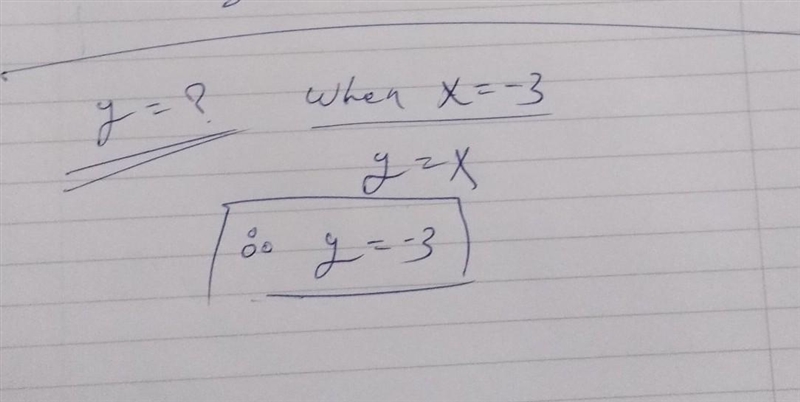 y = ? when x = -3
y = x
∴ y = -3